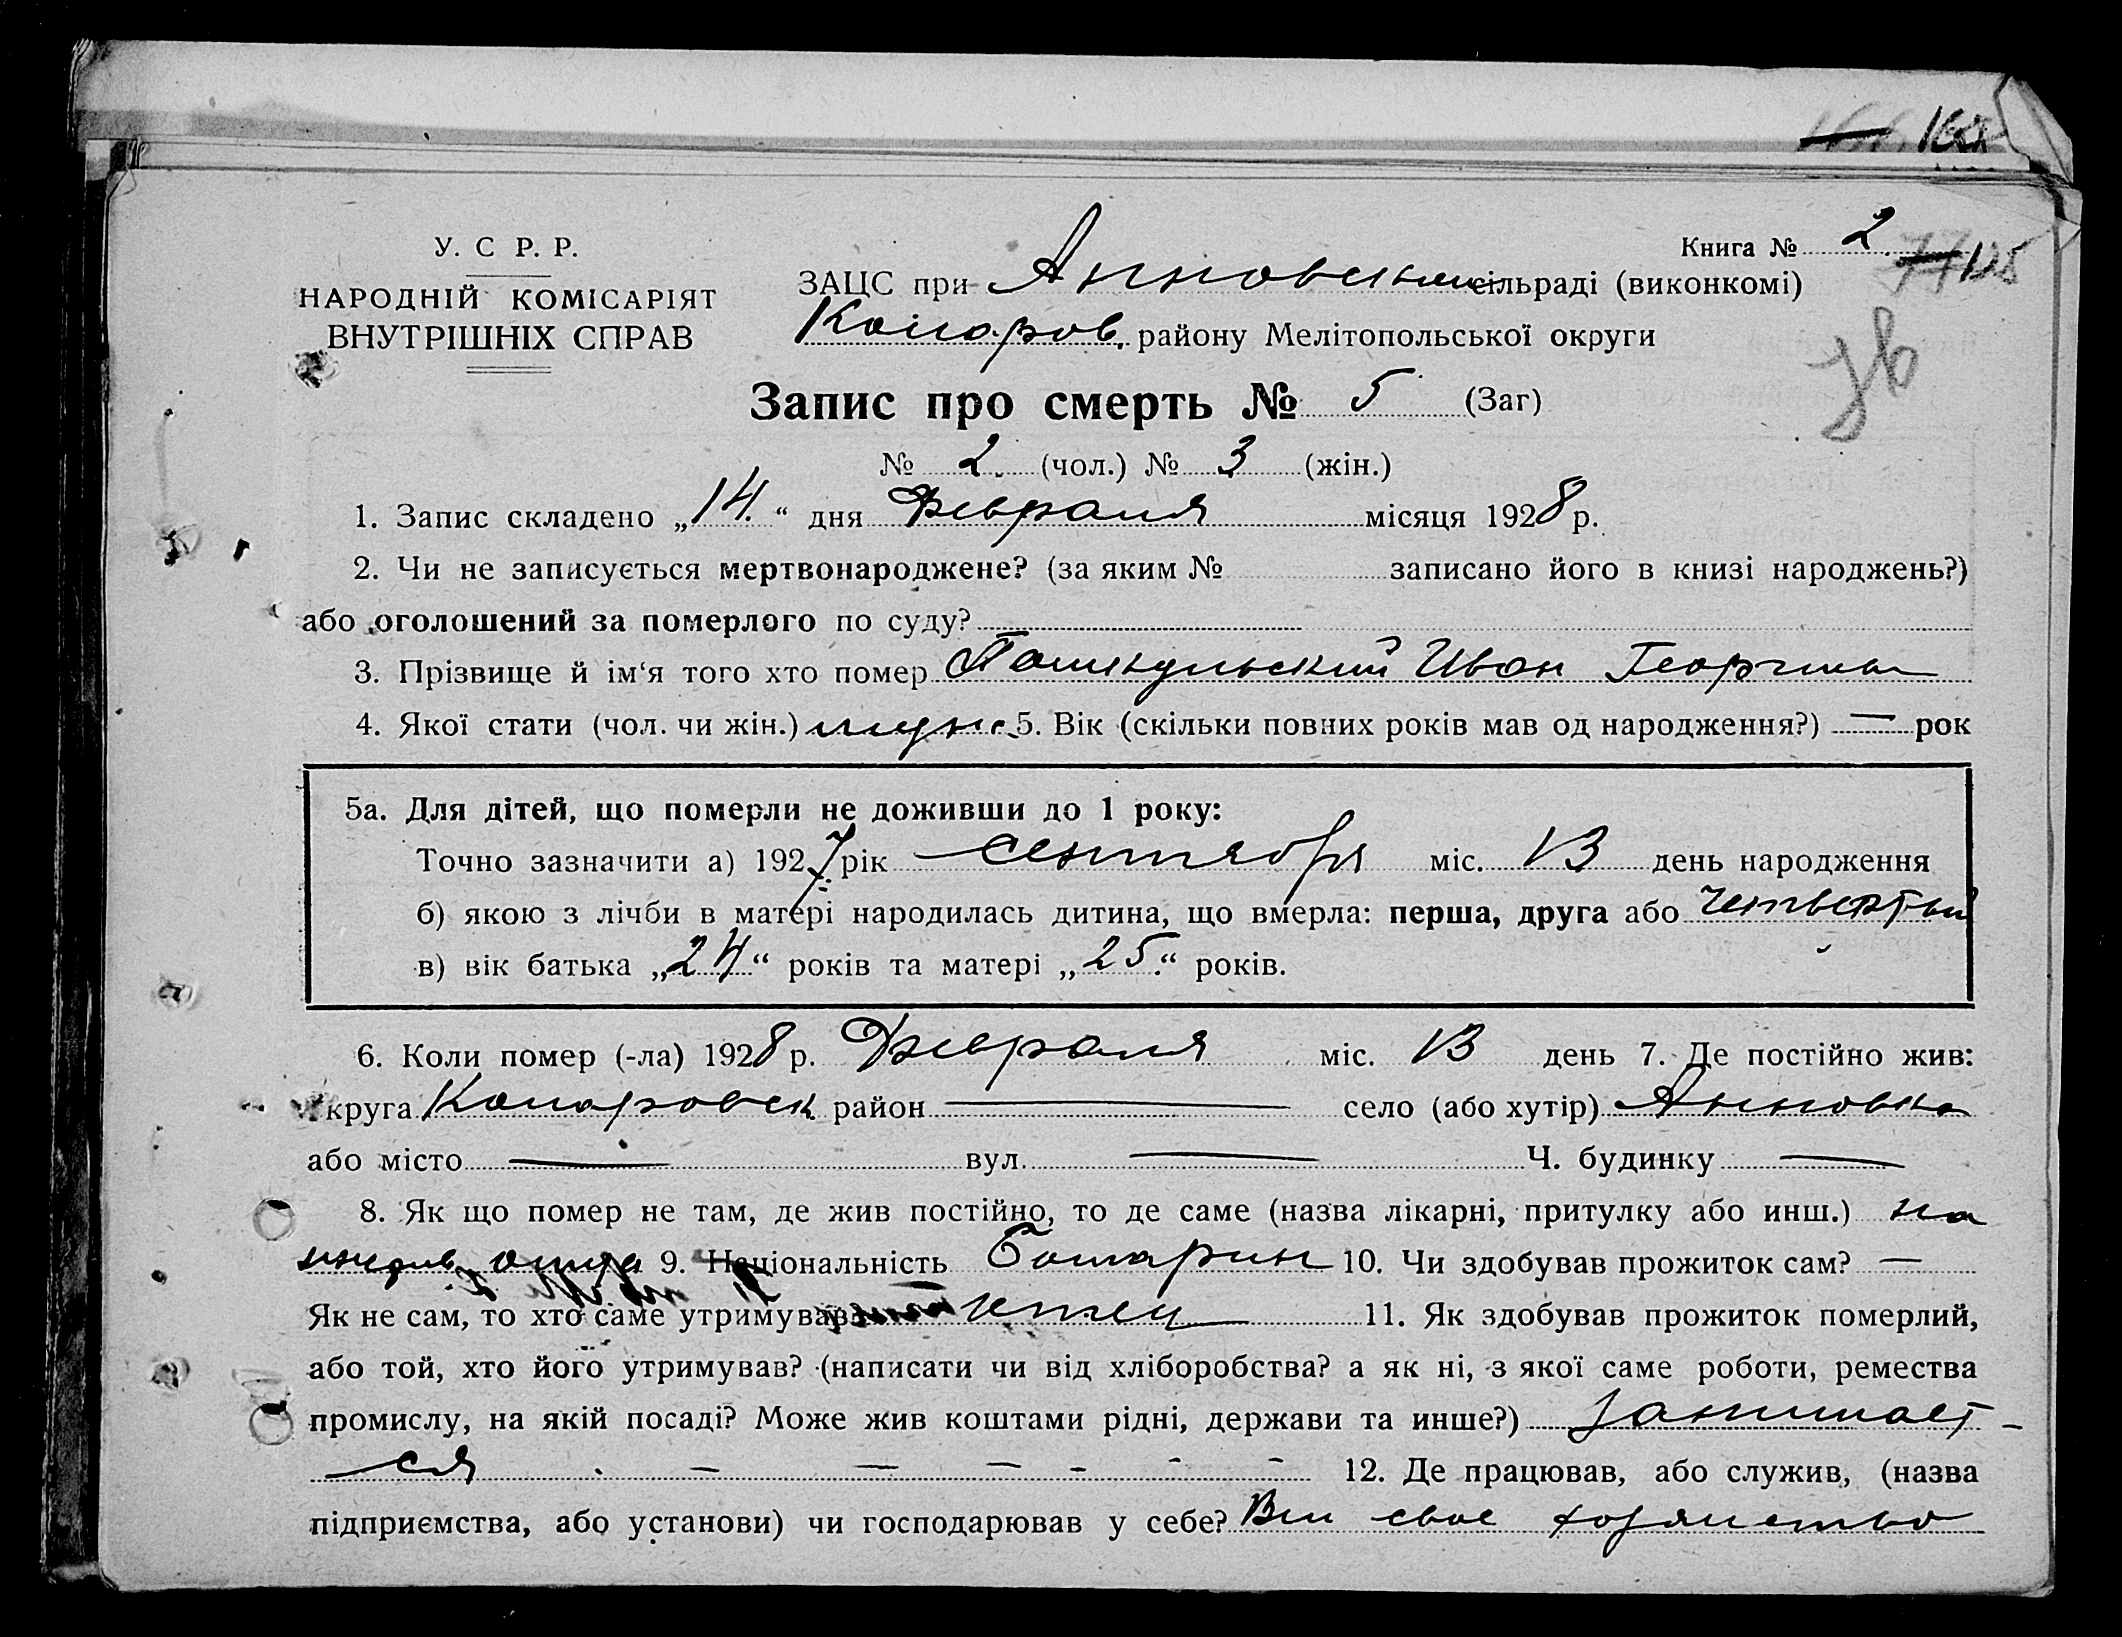 168
У. С. Р. Р.
НАРОДНІЙ КОМІСАРІЯТ
ВНУТРІШНІХ СПРАВ
Книга № 2 77 125
ЗАЦС при Анновском сільраді (виконкомі)
Комаров. району Мелітопольської округи
Запис про смерть № 5 (Заг)
№ 2. (чол.) № 3 (жін.)
1. Запис складено „14.“ дня Февраля місяця 1928 р.
2. Чи не записується мертвонароджене? (за яким № записано його в книзі народжень?)
або оголошений за померлого по суду?
3. Прізвище й ім‘я того хто помер Иван Георгиев
4. Якої стати (чол. чи жін.) муж. 5. Вік (скільки повних років мав од народження?) — рок
5а. Для дітей, що померли не доживши до 1 року:
Точно зазначити а) 1927 рік сентября міс. 13 день народження
б) якою з лічби в матері народилась дитина, що вмерла: перша, друга або четвертый
в) вік батька „24“ років та матері „25.“ років.
6. Коли помер (-ла) 1928 р. Февраля міс. 13 день 7. Де постійно жив:
округа Комаровск район — село (або хутір) Анновка
або місто — вул. — Ч. будинку —
8. Як що помер не там, де жив постійно, то де саме (назва лікарні, притулку або инш.) на
отца 9. Національність Болгарин 10. Чи здобував прожиток сам? —
Як не сам, то хто саме утримував отец 11. Як здобував прожиток померлий,
або той, хто його утримував? (написати чи від хліборобства? а як ні, з якої саме роботи, ремества
промислу, на якій посаді? Може жив коштами рідні, держави та инше?) занимает-
ся — — — - - - 12. Де працював, або служив, (назва
підприємства, або установи) чи господарював у себе? свое хозяйство